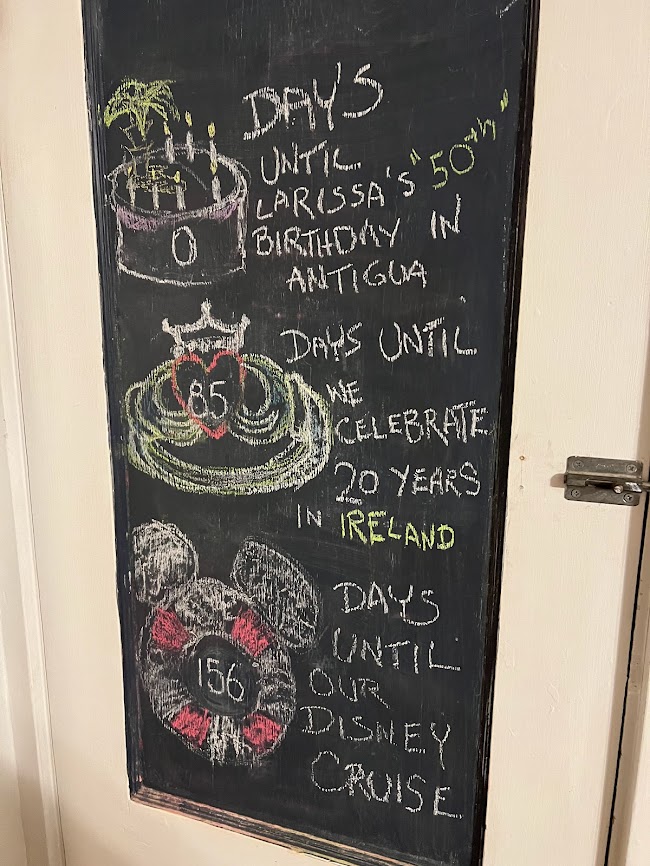 DAYS
UNTIL
LARISSA'S "50th"
BIRTHDAY IN
ANTIGUA
0
DAYS UNTIL
WE
CELEBRATE
20 YEARS
IN IRELAND
85
DAYS
UNTIL
OUR
DISNEY
CRUISE
156